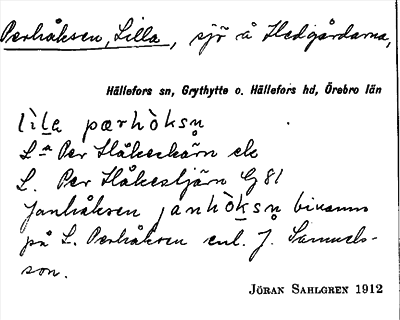 Perhåksen, Lilla, sjö å Hedgårdarna,
Hällefors sn, Grythytte o. Hällefors hd, Örebro län
lìla pærhòksn̥
L:a Per Håkeskärn ek
L. Per Håkestjärn G 81
Janhåksen janhòksn̥ binamn
på L. Perhåksen enl. J. Samuels-
son.
JÖRAN SAHLGREN 1912